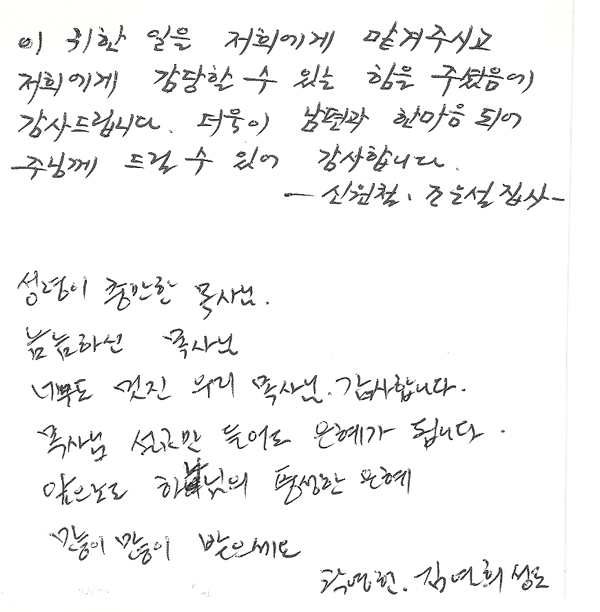 이 귀한 일을 저희에게 맡겨주시고
저희에게 감당할 수 있는 힘을 주셨음에
감사드립니다. 더욱이 남편과 한마음 되어
주님께 드릴 수 있어 감사합니다.
- 신원철, 조은설 집사 -
성령이 충만한 목사님.
늠늠하신 목사님
너무도 멋진 우리 목사님. 감사합니다.
목사님 설교만 들어도 은혜가 됩니다.
앞으로도 하나님의 풍성한 은혜
많이 많이 받으세요
곽영헌. 김연희 성도